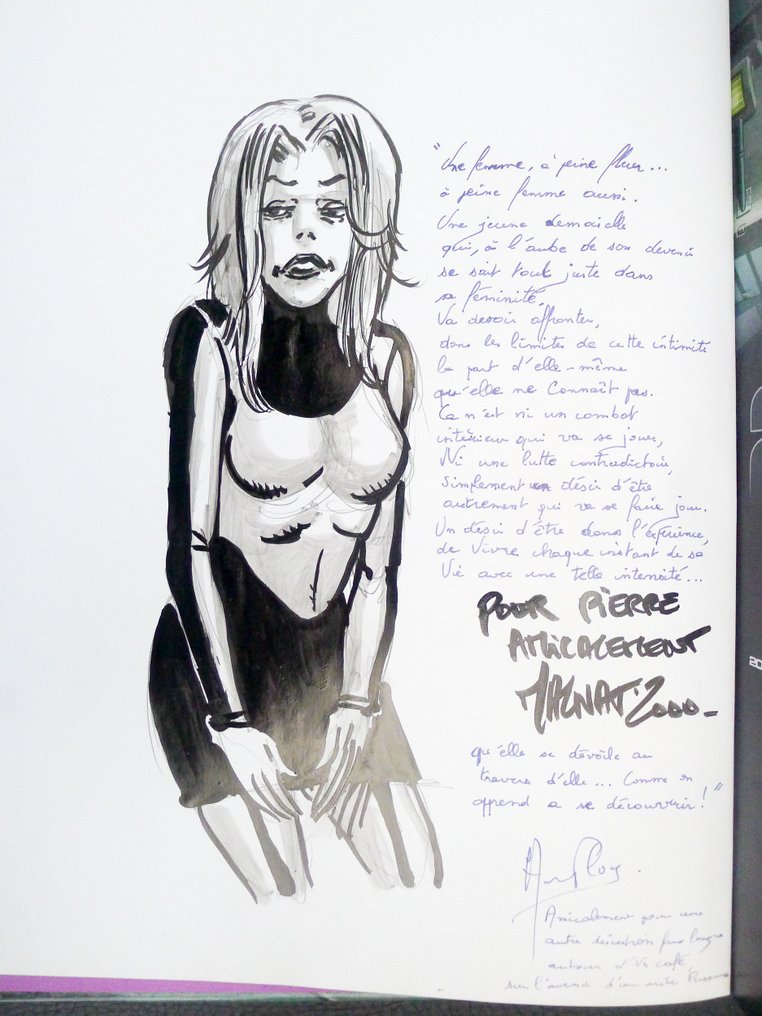 "Une femme, à peine fleur...
à peine femme aussi.
Une jeune demoiselle
qui, à l'aube de son devenir
se sait tout juste dans
sa féminité,
Va devoir affronter,
dans les limites de cette intimité
la part d'elle-même
qu'elle ne connaît pas.
Ça n'est ni un combat
intérieur qui va se jouer,
Ni une lutte contradictoire,
Simplement un désir d'être
autrement qui va se faire jour.
Un désir d'être dans l'expérience,
de vivre chaque instant de sa
Vie avec une telle intensité...
POUR PIERRE
AMICALEMENT
2000_
qu'elle se dévoile au
travers d'elle... Comme on
apprend a se découvrir!"
Amicalement pour une
autre discution plus longue
autour d'un café,
sur l'avenir d'un autre